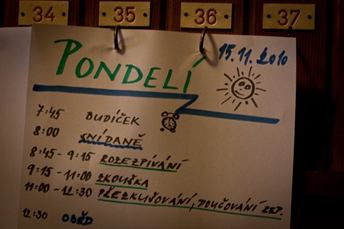 34 35 36 37
PONDELÍ 15.11.2010
7:45 BUDÍČEK
8:00 SNÍDANĚ
8:45 - 9:15 ROZEZPÍVÁNÍ
9:15 - 11:00 ZKOUŠKA
11:00 - 12:30
12:30 OBĚD